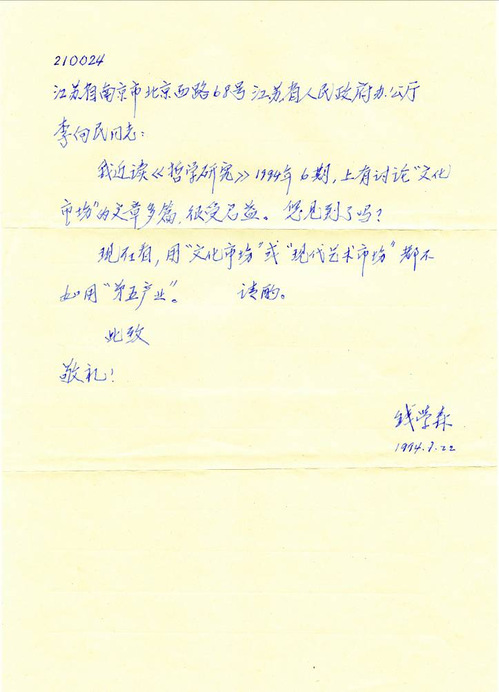 210024
江苏省南京市北京西路68号江苏省人民政府办公厅
李向民同志：
我近读《哲学研究》1994年6期，上有讨论“文化
市场”的文章多篇，很受启益。您见到了吗？
现在看，用“文化市场”或“现代艺术市场”都不
如用“第五产业”。 请酌。
此致
敬礼！
钱学森
1994.7.22